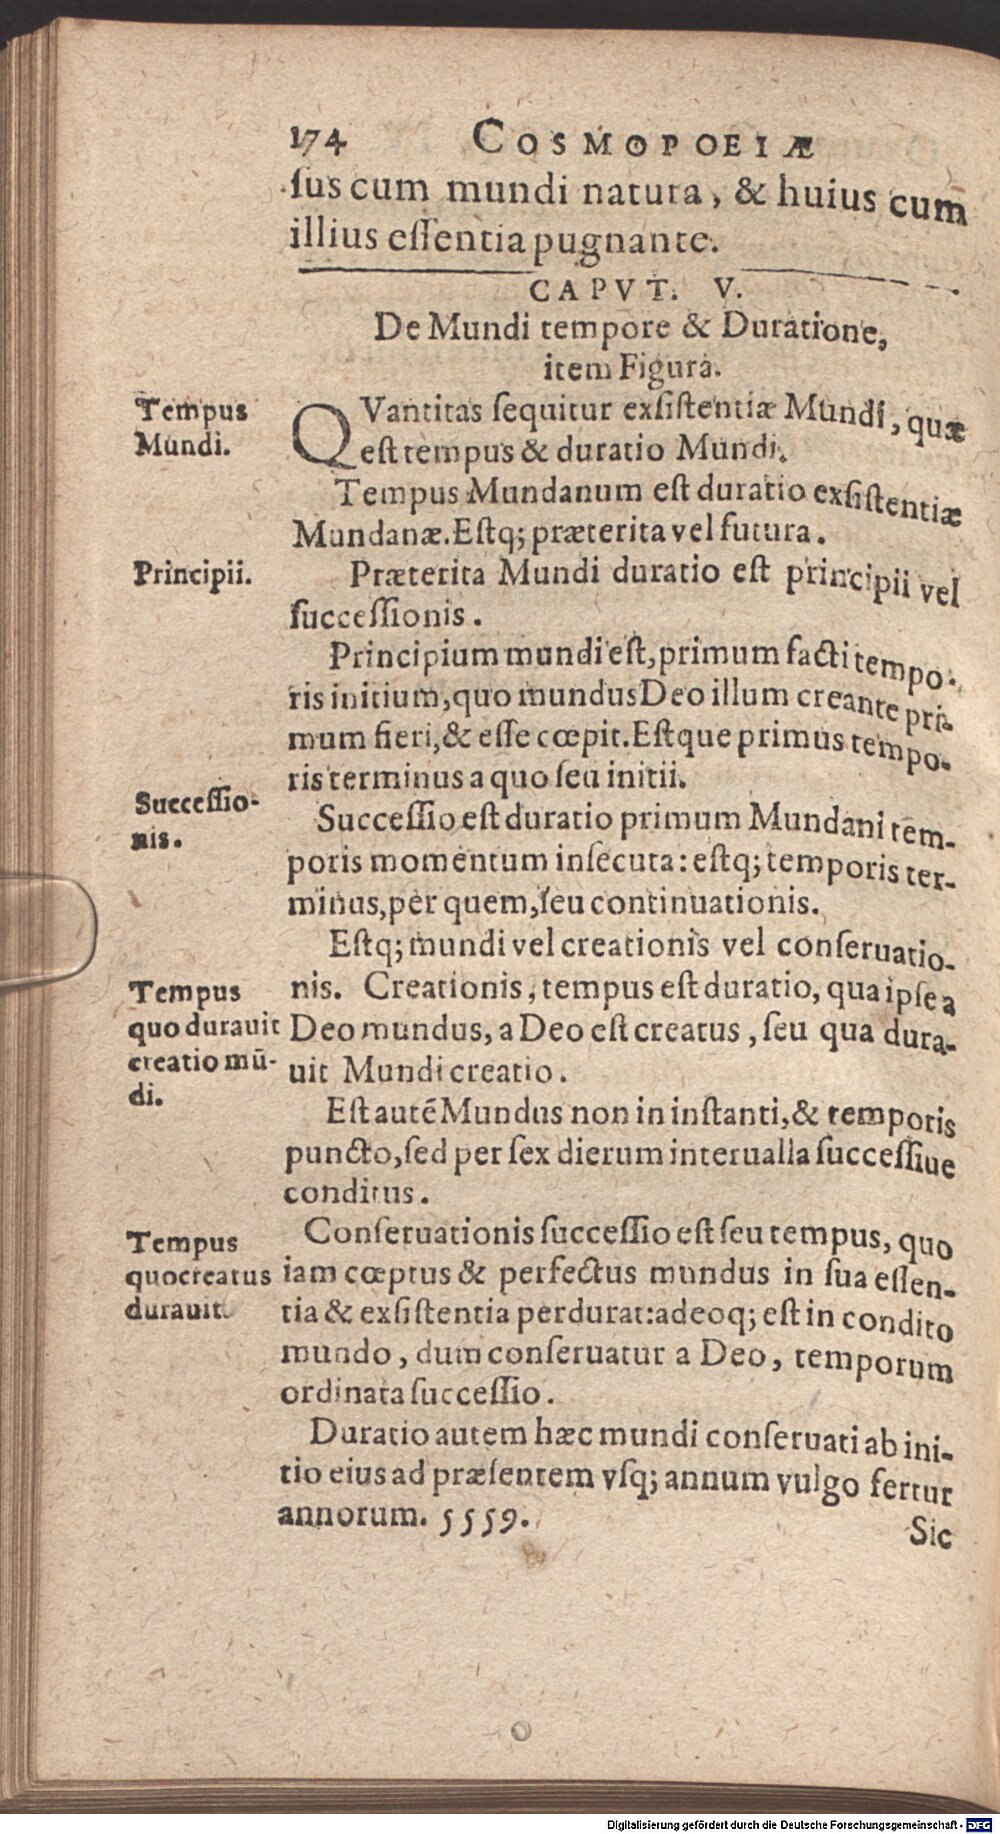 174 COSMOPOEIÆ
sus cum mundi natura, & huius cum
illius essentia pugnante.
CAPVT. V.
De Mundi tempore & Duratione,
item Figura.
Tempus
Mundi.
QVantitas sequitur exsistentiæ Mundi, quæ
est tempus & duratio Mundi.
Tempus Mundanum est duratio exsistentiæ
Mundanæ. Estq; præterita vel futura.
Principii.
Præterita Mundi duratio est principii vel
successionis.
Principium mundi est, primum facti tempo-
ris initium, quo mundus Deo illum creante pri-
mum fieri, & esse cœpit. Estque primus tempo-
ris terminus a quo seu initii.
Successio-
nis.
Successio est duratio primum Mundani tem-
poris momentum insecuta: estq; temporis ter-
minus, per quem, seu continuationis.
Estq; mundi vel creationis vel conseruatio-
Tempus
quo durauit
creatio mū-
di.
nis. Creationis, tempus est duratio, qua ipse a
Deo mundus, a Deo est creatus, seu qua dura-
uit Mundi creatio.
Est autē Mundus non in instanti, & temporis
puncto, sed per sex dierum interualla successiue
conditus.
Tempus
quo creatus
durauit.
Conseruationis successio est seu tempus, quo
iam cœptus & perfectus mundus in sua essen-
tia & exsistentia perdurat: adeoq; est in condito
mundo, dum conseruatur a Deo, temporum
ordinata successio.
Duratio autem hæc mundi conseruati ab ini-
tio eius ad præsentem vsq; annum vulgo fertur
annorum. 5559.
Sic
Digitalisierung gefördert durch die Deutsche Forschungsgemeinschaft - DFG